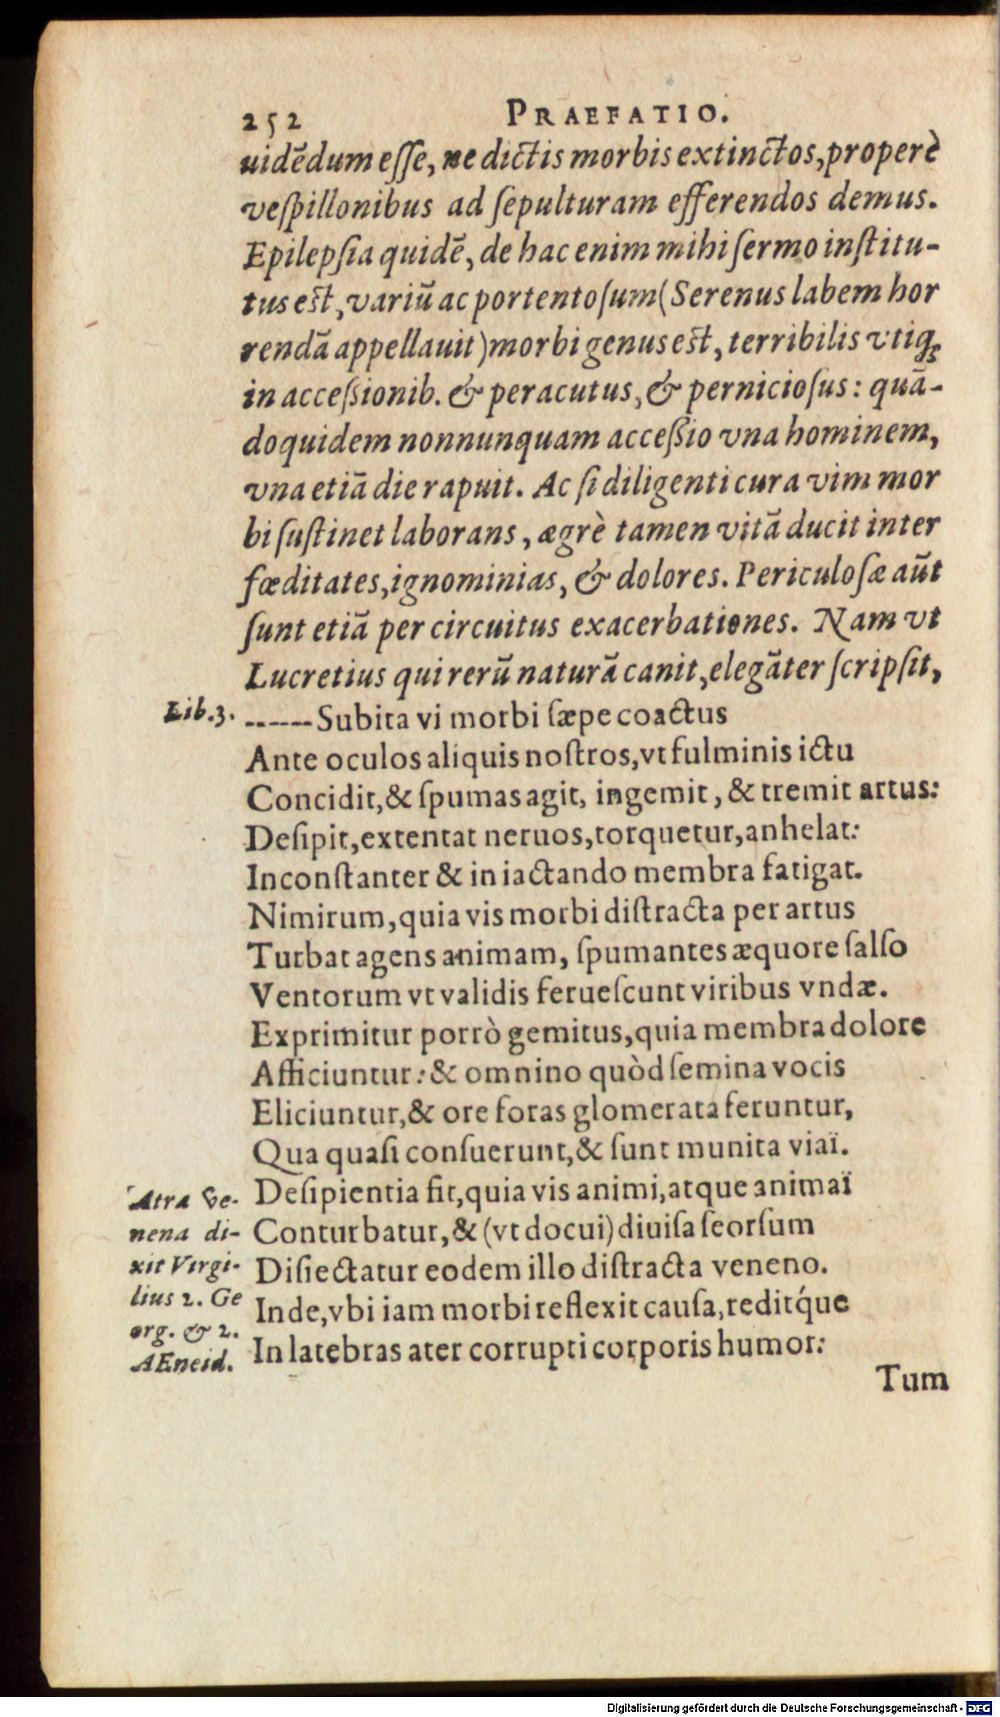 252 PRAEFATIO.
uidēdum esse, ne dictis morbis extinctos, properè
vespillonibus ad sepulturam efferendos demus.
Epilepsia quidē, de hac enim mihi sermo institu-
tus est, variū ac portentosum (Serenus labem hor
rendā appellauit) morbi genus est, terribilis vtiq;
in accessionib. & peracutus, & perniciosus: quā-
doquidem nonnunquam accessio vna hominem,
vna etiā die rapuit. Ac si diligenti cura vim mor
bi sustinet laborans, ægrè tamen vitā ducit inter
fœditates, ignominias, & dolores. Periculosæ aūt
sunt etiā per circuitus exacerbationes. Nam vt
Lucretius qui rerū naturā canit, elegāter scripsit,
Lib.3. ------Subita vi morbi sæpe coactus
Ante oculos aliquis nostros, vt fulminis ictu
Concidit, & spumas agit, ingemit, & tremit artus:
Desipit, extentat neruos, torquetur, anhelat:
Inconstanter & in iactando membra fatigat.
Nimirum, quia vis morbi distracta per artus
Turbat agens animam, spumantes æquore salso
Ventorum vt validis feruescunt viribus vndæ.
Exprimitur porrò gemitus, quia membra dolore
Afficiuntur: & omnino quòd semina vocis
Eliciuntur, & ore foras glomerata feruntur,
Qua quasi consuerunt, & sunt munita viaï.
Desipientia fit, quia vis animi, atque animaï
Conturbatur, & (vt docui) diuisa seorsum
Disiectatur eodem illo distracta veneno.
Inde, vbi iam morbi reflexit causa, reditq́ue
In latebras ater corrupti corporis humor:
Atra ve-
nena di-
xit Virgi-
lius 2. Ge
org. & 2.
AEneid.
Tum
Digitalisierung gefördert durch die Deutsche Forschungsgemeinschaft - DFG